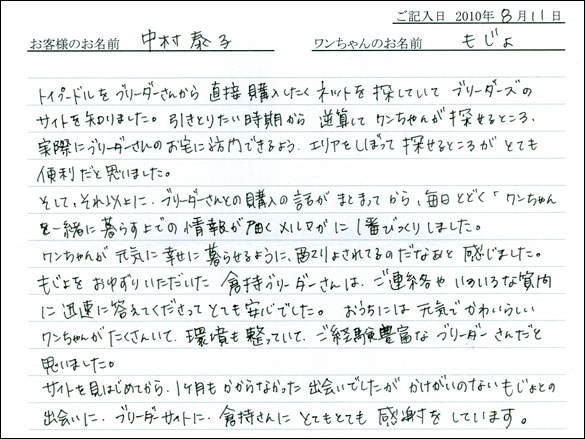 ご記入日 2010年 8月11日
お客様のお名前 中村泰子 ワンちゃんのお名前 もじょ
トイプードルをブリーダーさんから直接購入したくネットを探していてブリーダーズの
サイトを知りました。引きとりたい時期から逆算してワンちゃんが探せるところ、
実際にブリーダーさんのお宅に訪問できるよう、エリアをしぼって探せるところがとても
便利だと思いました。
そして、それ以上に、ブリーダーさんとの購入の話がまとまってから、毎日とどく「ワンちゃん
と一緒に暮らす上での情報が届くメルマガに1番びっくりしました。
ワンちゃんが元気に幸せに暮らせるように、配りょされてるのだなあと感じました。
もじょをおゆずりいただいた倉持ブリーダーさんは、ご連絡やいろいろな質問
に迅速に答えてくださってとても安心でした。おうちには元気でかわいらしい
ワンちゃんがたくさんいて、環境も整っていて、ご経験豊富なブリーダーさんだと
思いました。
サイトを見はじめてから、1ヶ月もかからなかった出会いでしたがかけがいのないもじょとの
出会いに、ブリーダーサイトに、倉持さんにとてもとても感謝をしています。